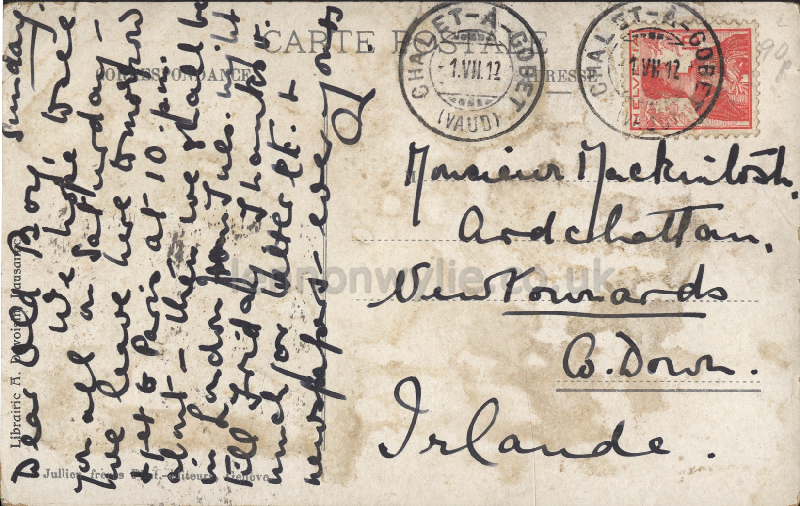 CARTE POSTALE
CORRESPONDANCE
ADRESSE
CHALET-À-GOBET
-1.VII.12
(VAUD)
CHALET-À-GOBET
1.VII.12
HELVETIA
90p
Sunday.
Dear Old Boy,
We hope to see
you all on Saturday -
we leave here tomorrow
get to Paris at 10 p.m.
- then we shall be
in London from Tues. night
till Friday. Thanks v.
much for letter etc. &
newspapers - ever yours
Monsieur Mackintosh,
Ardchattan,
Newtownards
Co. Down.
Irlande.
lennonwylie.co.uk
Librairie A. Lausanne
Jullien frères Phot.-Editeurs, Genève